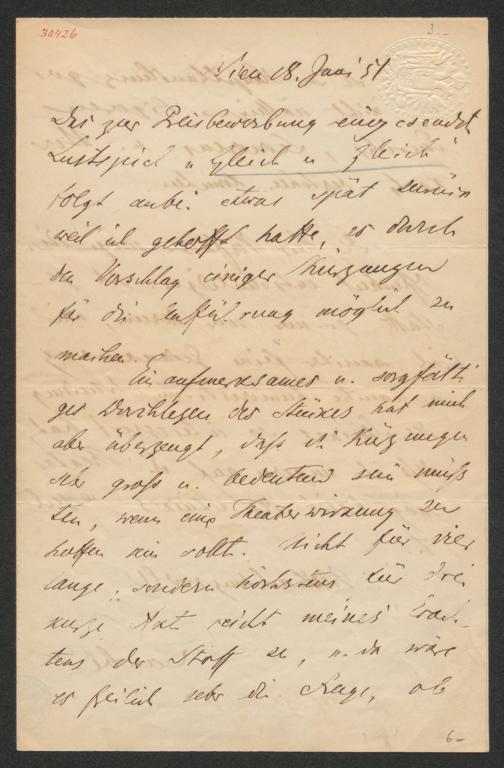 30426
3 —
Wien 18. Juni 51
Das zur Preisbewerbung eingesendete
Lustspiel „Gleich u Gleich“
folgt anbei etwas spät zurück
weil ich gehofft hatte, es durch
den Vorschlag einiger Kürzungen
für die Aufführung möglich zu
machen.
Ein aufmerksames u. sorgfälti
ges Durchlesen des Stückes hat mich
aber überzeugt, daß die Kürzungen
sehr groß u. bedeutend sein müß
ten, wenn eine Theaterwirkung zu
hoffen sein sollte. Nicht für vier
lange, sondern höchstens für drei
kurze Akte reicht meines Erach-
tens der Stoff zu, u. da wäre
es freilich sehr die Frage, ob
6 —